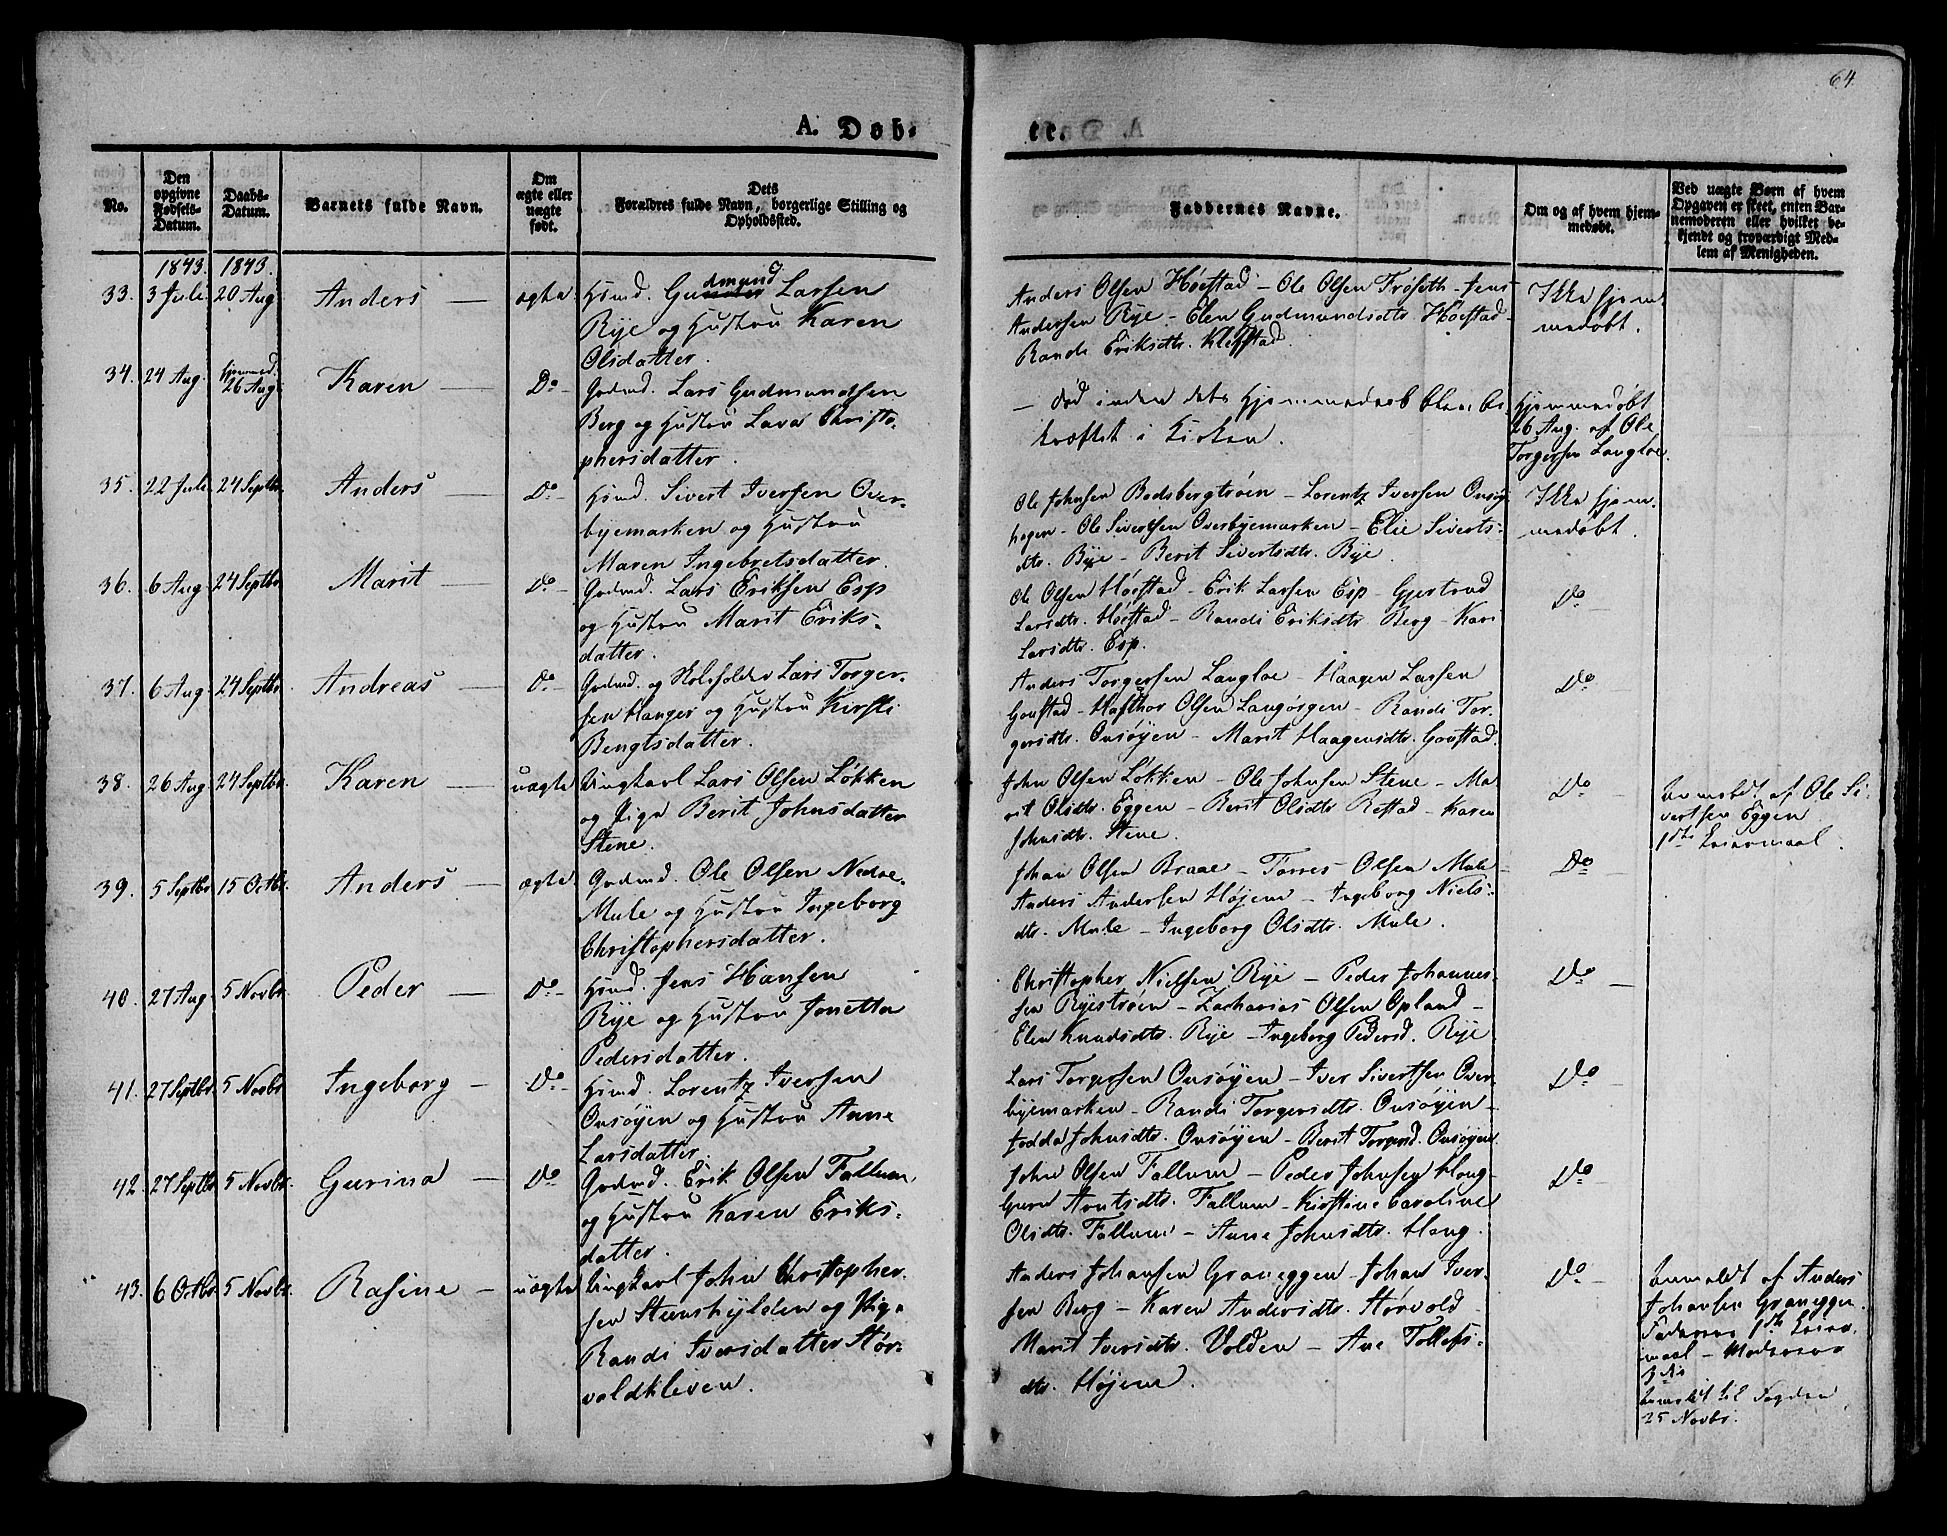 64
A. Døb-
te.
No.
Den
opgivne
Fødsels-
Datum.
Daabs-
Datum.
Barnets fulde Navn.
Om
ægte eller
uægte
født.
Dets
Forældres fulde Navn, borgerlige Stilling og
Opholdssted.
Faddernes Navne.
Om og af hvem hjem-
medøbt.
Ved uægte Børn af hvem
Opgaven er skeet, enten Bar-
nemoderen eller hvilket be-
kjendt og troværdigt Med-
lem af Menigheden.
1843. 1843.
33. 3 Juli 20 Aug. Anders — ægte
Huusmd. Gudmund Larsen
Rye og Hustru Karen
Olsdatter.
Anders Olsen Høestad – Ole Olsen Trøseth – Jens
Andersen Rye – Elen Gudmundsdtr. Høestad –
Randi Eriksdtr. Klefstad.
Ikke hjem-
medøbt.
34. 24 Aug. Hjemmed. 26 Aug. Karen — Do –
Gaardmd. Lars Gudmundsen
Berg og Hustru Lava Christo-
phersdatter.
– død inden dets Hjemmedaab blev be-
kræftet i Kirken.
Hjemmedøbt
26 Aug. af Ole
Torgersen Langloe.
35. 22 Juli 24 Septbr. Anders — Do –
Huusmd. Sivert Iversen Over-
byemarken og Hustru
Maren Ingebretsdatter.
Ole Johnsen Bodsbergtrøen – Lorentz Iversen Onsøy-
hagen – Ole Sivertsen Overbyemarken – Elie Siverts-
dtr. Rye – Berit Sivertsdtr. Rye.
Ikke hjem-
medøbt.
36. 6 Aug. 24 Septbr. Marit — Do –
Gaardmd. Lars Eriksen Esp
og Hustru Marit Eriks-
datter.
Ole Olsen Høestad – Erik Larsen Esp – Gjertrud
Larsdtr. Høestad – Randi Eriksdtr. Berg – Kari
Larsdtr. Esp.
Do –
37. 6 Aug. 24 Septbr. Andreas — Do –
Gaardmd. og Kirkeholder Lars Torger-
sen Hanger og Hustru Kirsti
Bengtsdatter.
Anders Torgersen Langloe – Haagen Larsen
Goustad – Hafthor Olsen Langørgen – Randi Tor-
gersdtr. Onsøyen – Marit Haagensdtr. Goustad.
Do –
38. 26 Aug. 24 Septbr. Karen — uægte
Ungkarl Lars Olsen Løkken
og Pige Berit Johnsdatter
Stene.
John Olsen Løkken – Ole Johnsen Stene – Ma-
rit Olsdtr. Eggen – Berit Olsdtr. Rostad – Karen
Johnsdtr. Stene.
Do –
Anmeldt af Ole Si-
vertsen Eggen
1ste Leiermaal.
39. 5 Septbr. 15 Octbr. Anders — ægte
Gaardmd. Ole Olsen Nedre-
Mule og Hustru Ingeborg
Christophersdatter.
Johan Olsen Braae – Torres Olsen Mule –
Anders Andersen Højem – Ingeborg Niels-
dtr. Mule – Ingeborg Olsdtr. Mule.
Do –
40. 27 Aug. 5 Novbr. Peder — Do –
Huusmd. Jens Hansen
Rye og Hustru Jonetta
Pedersdatter.
Christopher Nielsen Rye – Peder Johannes-
sen Ryestrøen – Zacharias Olsen Opland –
Elen Knudsdtr. Rye – Ingeborg Pedersd. Rye.
Do –
41. 27 Septbr. 5 Novbr. Ingeborg — Do –
Huusmd. Lorentz Iversen
Onsøyen og Hustru Anne
Larsdatter.
Lars Torgersen Onsøyen – Iver Sivertsen Over-
byemarken – Randi Torgersdtr. Onsøyen –
Jodda Johnsdtr. Onsøyen – Berit Torgersd. Onsøyen.
Do –
42. 27 Septbr. 5 Novbr. Gurina — Do –
Gaardmd. Erik Olsen Fallum
og Hustru Karen Eriks-
datter.
John Olsen Fallum – Peder Johnsen Haug –
Guru Arntsdtr. Fallum – Kirstine Caroline
Olsdtr. Fallum – Anne Johnsdtr. Haug.
Do –
43. 6 Octbr. 5 Novbr. Rasine — uægte
Ungkarl John Christopher-
sen Steenshylden og Pige
Randi Iversdatter Stør-
voldkleven.
Anders Johansen Graneggen – Johan Iver-
sen Berg – Karen Andersdtr. Størvold –
Marit Iversdtr. Volden – Ane Tollefs-
dtr. Højem.
Do –
Anmeldt af Anders
Johansen Graneggen.
Faderens 1ste Leier-
maal – Moderens
Anmeldt til Fogden
25 Novbr.